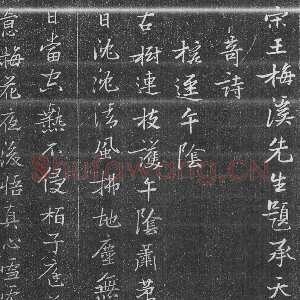 宋王梅溪先生題承天
寺詩
榕逕午陰
古樹連枝護午陰蕭蕭
日沈沈清風拂地塵無
日當空爇不侵栢子庭
意梅花夜後悟真心
shufawang.cn